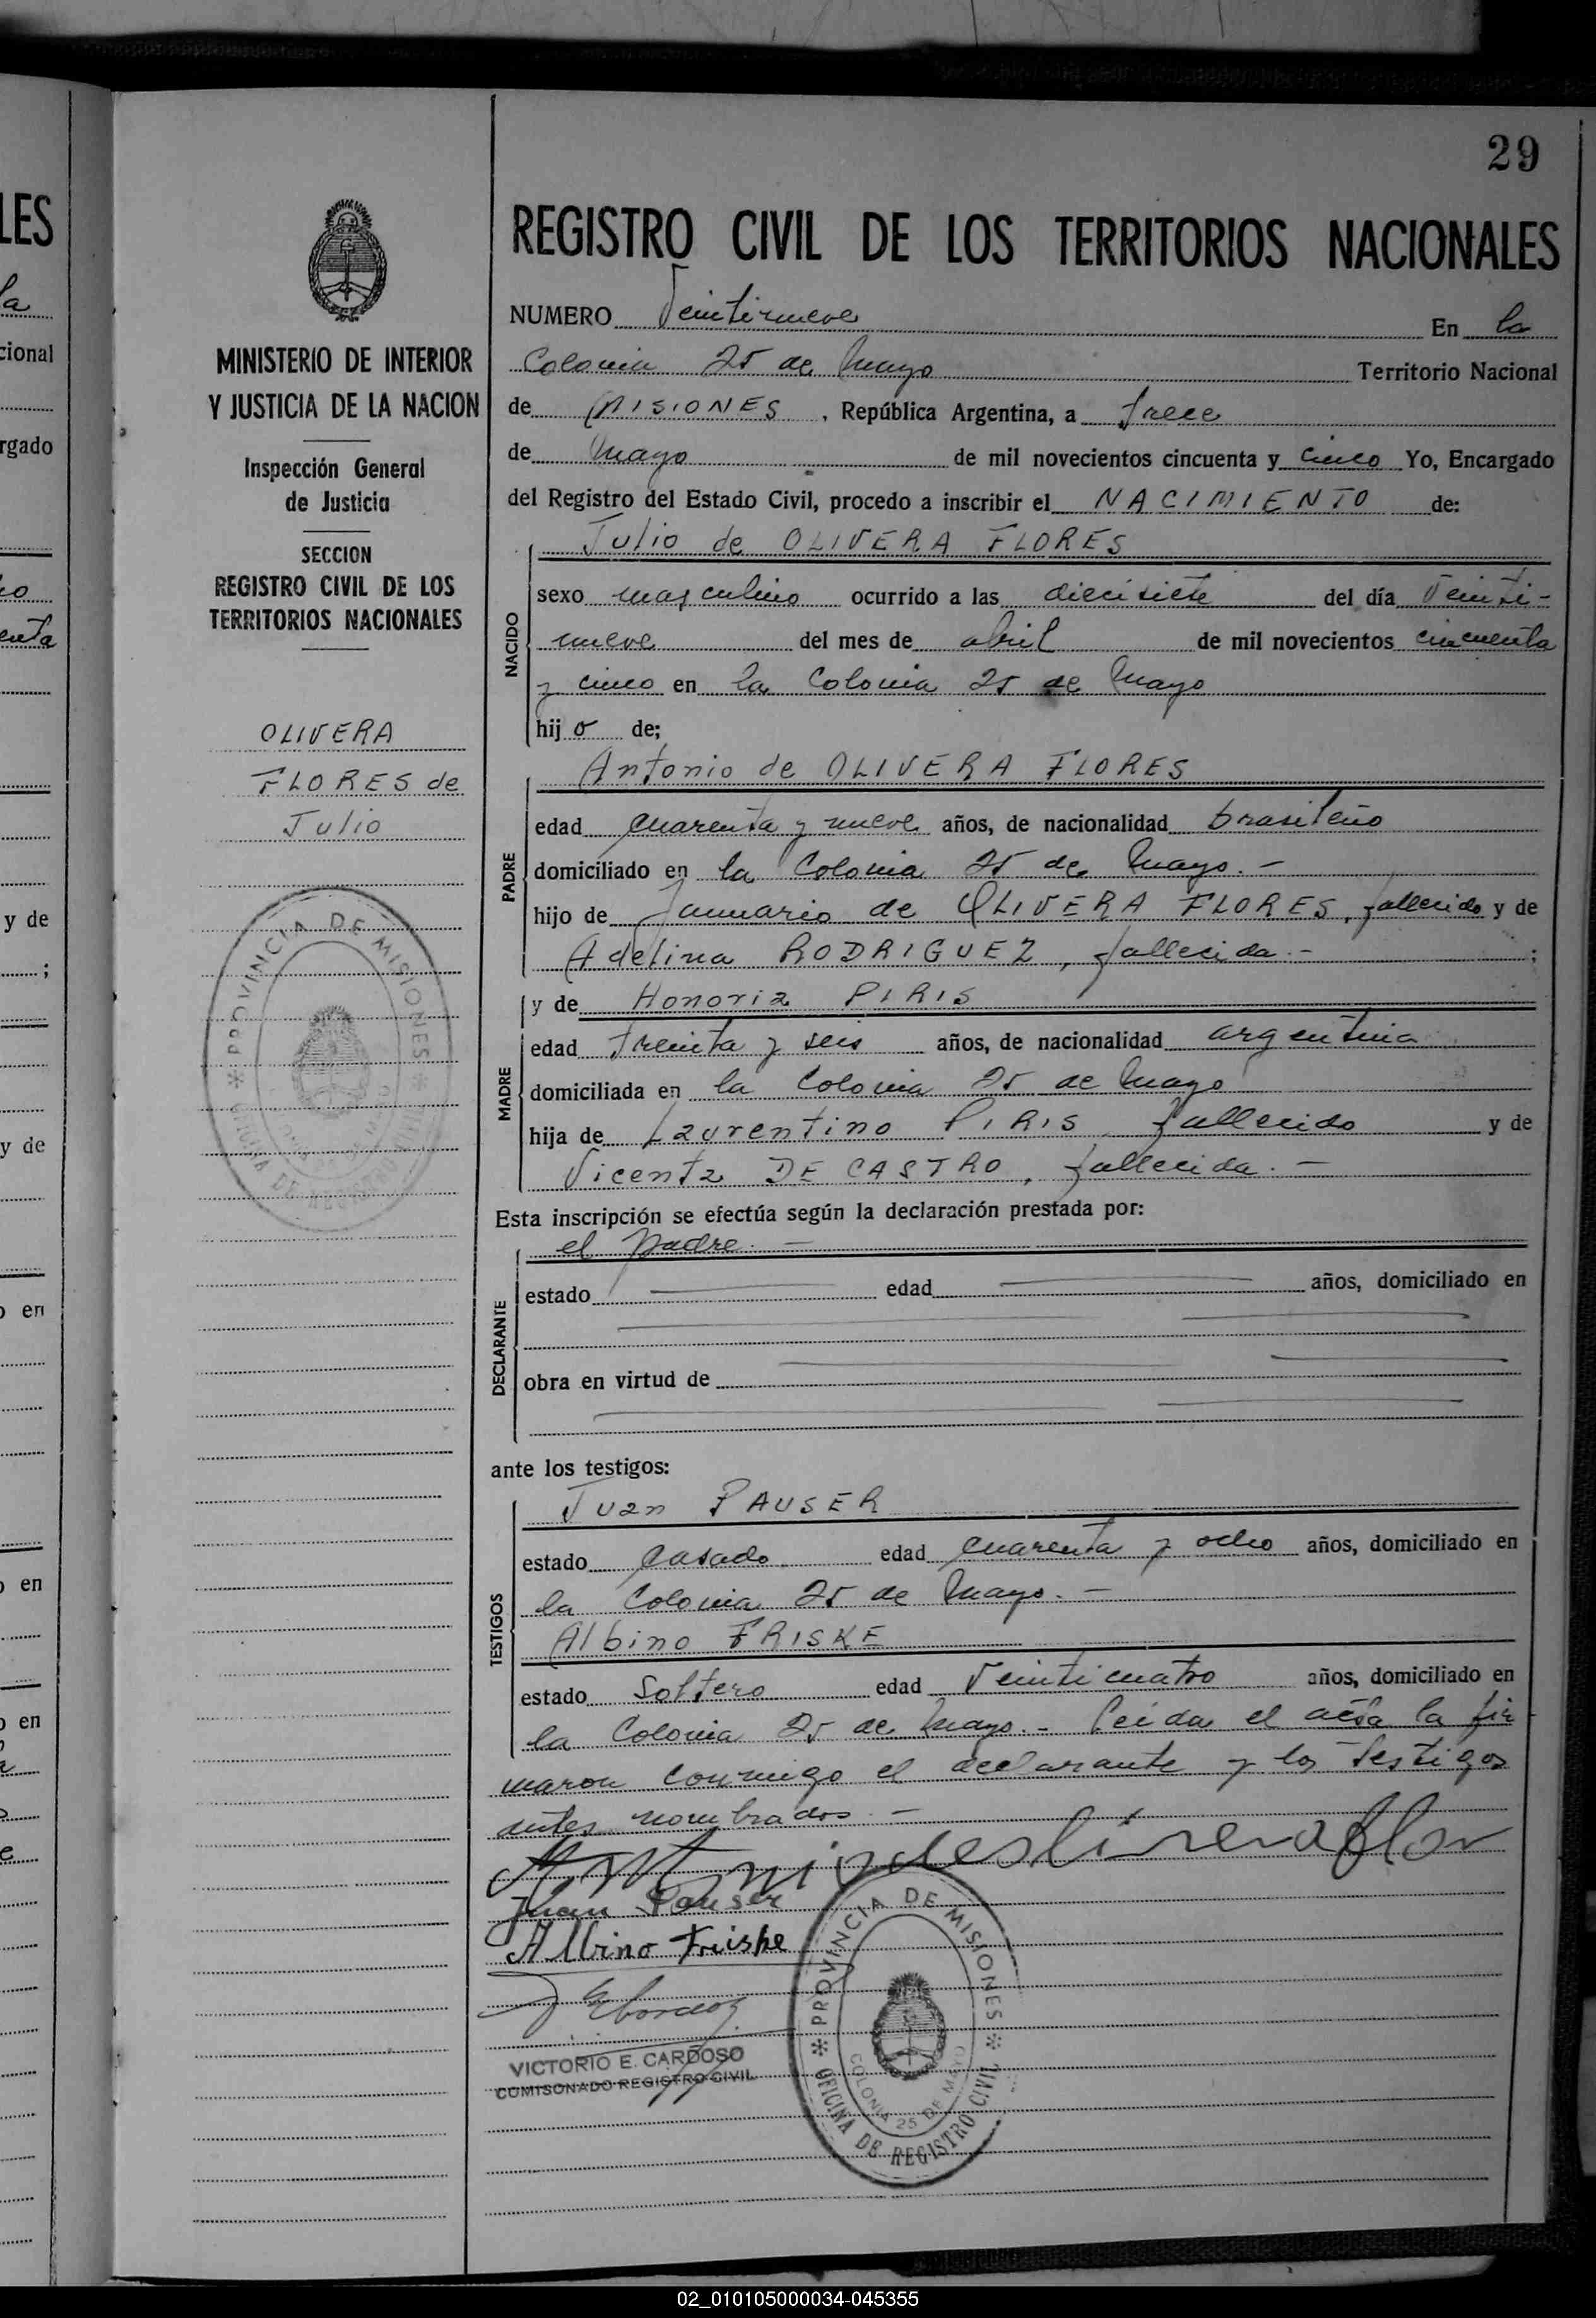 29
LES
la
cional
rgado
y de
;
y de
en
en
en
MINISTERIO DE INTERIOR
Y JUSTICIA DE LA NACION
Inspección General
de Justicia
SECCION
REGISTRO CIVIL DE LOS
TERRITORIOS NACIONALES
OLIVERA
FLORES de
Julio
PROVINCIA DE MISIONES
REGISTRO CIVIL DE LOS TERRITORIOS NACIONALES
NUMERO Veintinueve En la
Colonia 25 de Mayo Territorio Nacional
de MISIONES, República Argentina, a trece
de Mayo de mil novecientos cincuenta y cinco Yo, Encargado
del Registro del Estado Civil, procedo a inscribir el NACIMIENTO de:
Julio de OLIVERA FLORES
NACIDO
sexo masculino ocurrido a las diecisiete del día Veinti-
nueve del mes de abril de mil novecientos cincuenta
y cinco en la Colonia 25 de Mayo
hijo de;
Antonio de OLIVERA FLORES
PADRE
edad cuarenta y nueve años, de nacionalidad brasileño
domiciliado en la Colonia 25 de Mayo.-
hijo de Januario de OLIVERA FLORES, fallecido y de
Adelina RODRIGUEZ, fallecida.- ;
y de Honoria PIRIS
MADRE
edad treinta y seis años, de nacionalidad argentina
domiciliada en la Colonia 25 de Mayo
hija de Laurentino PIRIS, fallecido y de
Vicenta DE CASTRO, fallecida.-
Esta inscripción se efectúa según la declaración prestada por:
el padre.-
DECLARANTE
estado edad años, domiciliado en
obra en virtud de
ante los testigos:
Juan PAUSER
TESTIGOS
estado casado edad cuarenta y ocho años, domiciliado en
la Colonia 25 de Mayo.-
Albino FRISKE
estado Soltero edad Veinticuatro años, domiciliado en
la Colonia 25 de Mayo.- Leida el acta la fir-
maron conmigo el declarante y los testigos
antes nombrados.-
Juan Pauser
Albino Friske
VICTORIO E. CARDOSO
COMISONADO REGISTRO CIVIL
PROVINCIA DE MISIONES
OFICINA DE REGISTRO CIVIL
COLONIA 25 DE MAYO
02_010105000034-045355